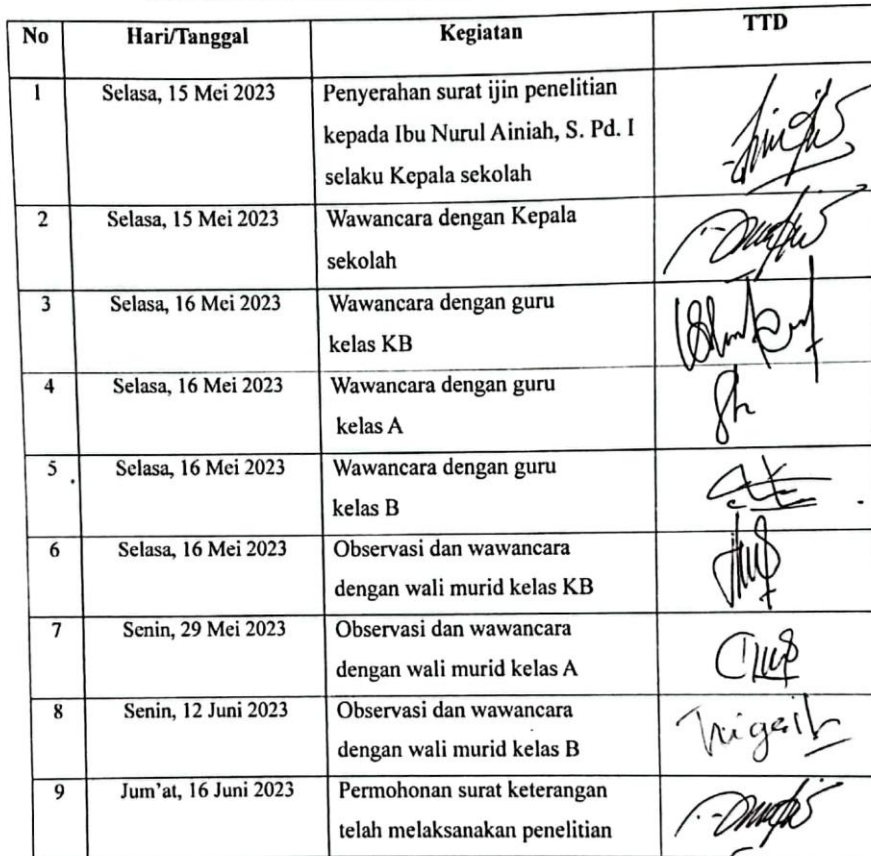 No Hari/Tanggal Kegiatan TTD
1 Selasa, 15 Mei 2023 Penyerahan surat ijin penelitian
kepada Ibu Nurul Ainiah, S. Pd. I
selaku Kepala sekolah
2 Selasa, 15 Mei 2023 Wawancara dengan Kepala
sekolah
3 Selasa, 16 Mei 2023 Wawancara dengan guru
kelas KB
4 Selasa, 16 Mei 2023 Wawancara dengan guru
kelas A
5 Selasa, 16 Mei 2023 Wawancara dengan guru
kelas B
6 Selasa, 16 Mei 2023 Observasi dan wawancara
dengan wali murid kelas KB
7 Senin, 29 Mei 2023 Observasi dan wawancara
dengan wali murid kelas A
8 Senin, 12 Juni 2023 Observasi dan wawancara
dengan wali murid kelas B
9 Jum'at, 16 Juni 2023 Permohonan surat keterangan
telah melaksanakan penelitian